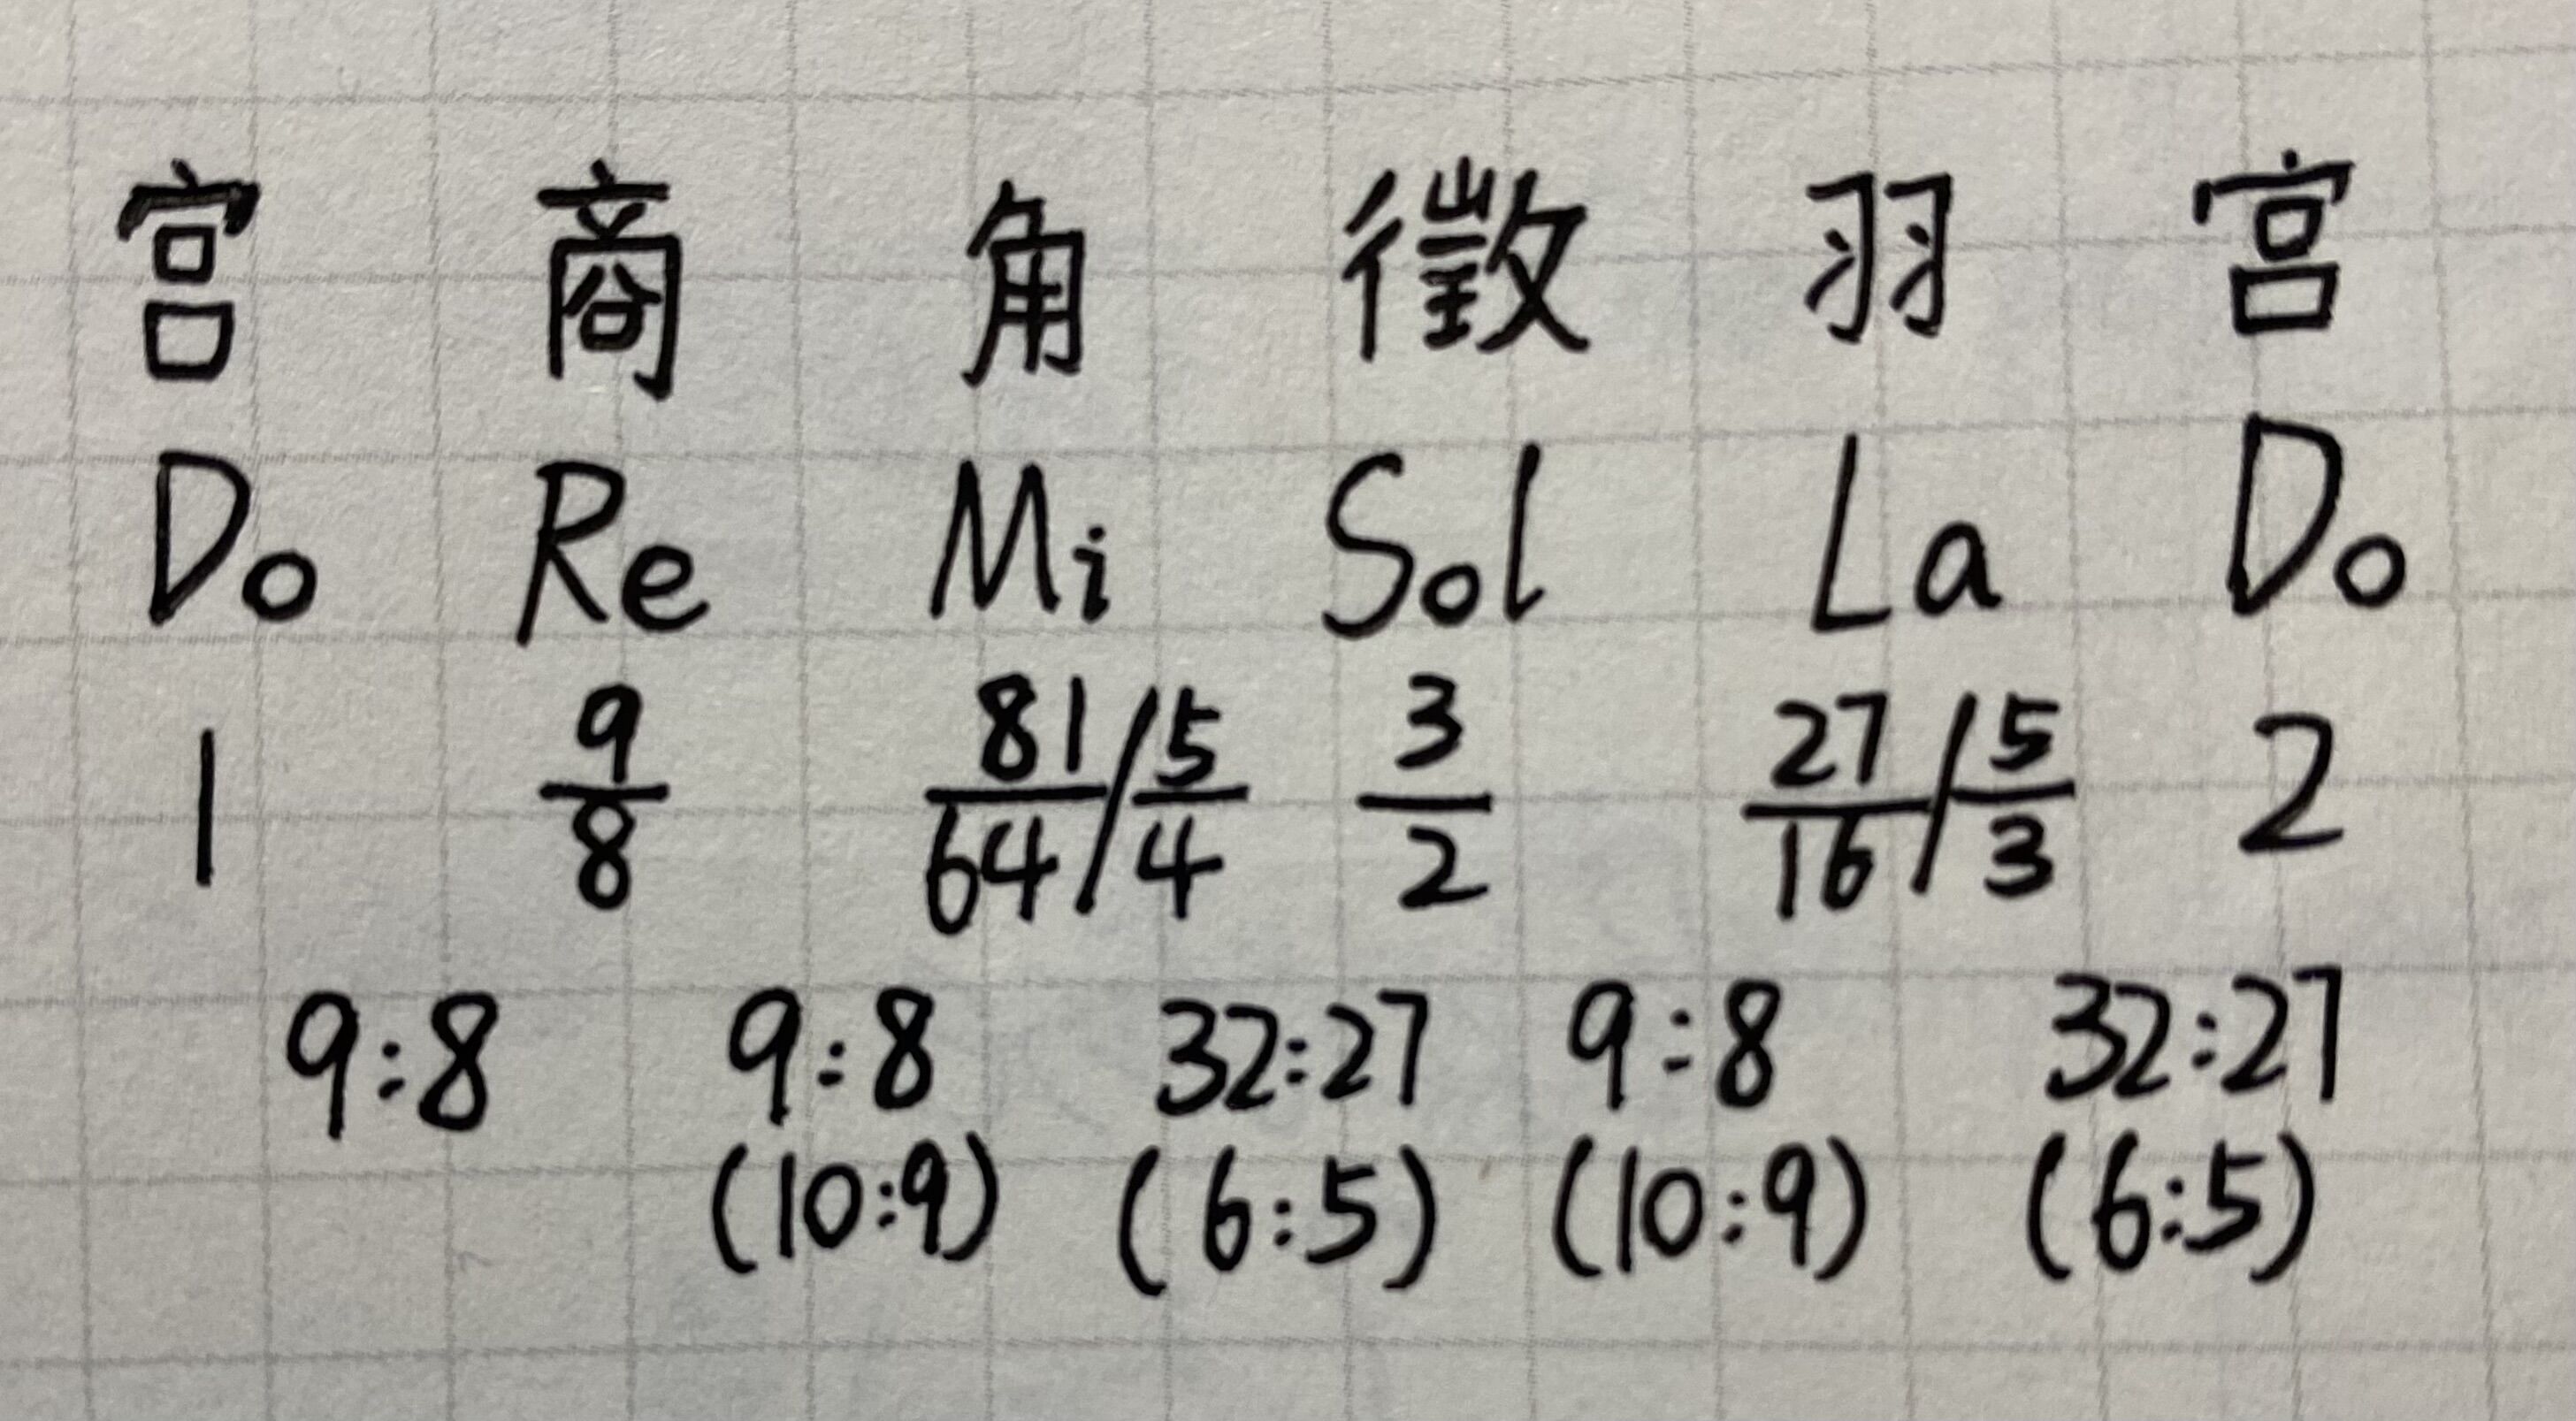 宫 商 角 徵 羽 宫
Do Re Mi Sol La Do
1 9/8 81/64/5/4 3/2 27/16/5/3 2
9:8 9:8 32:27 9:8 32:27
(10:9) (6:5) (10:9) (6:5)